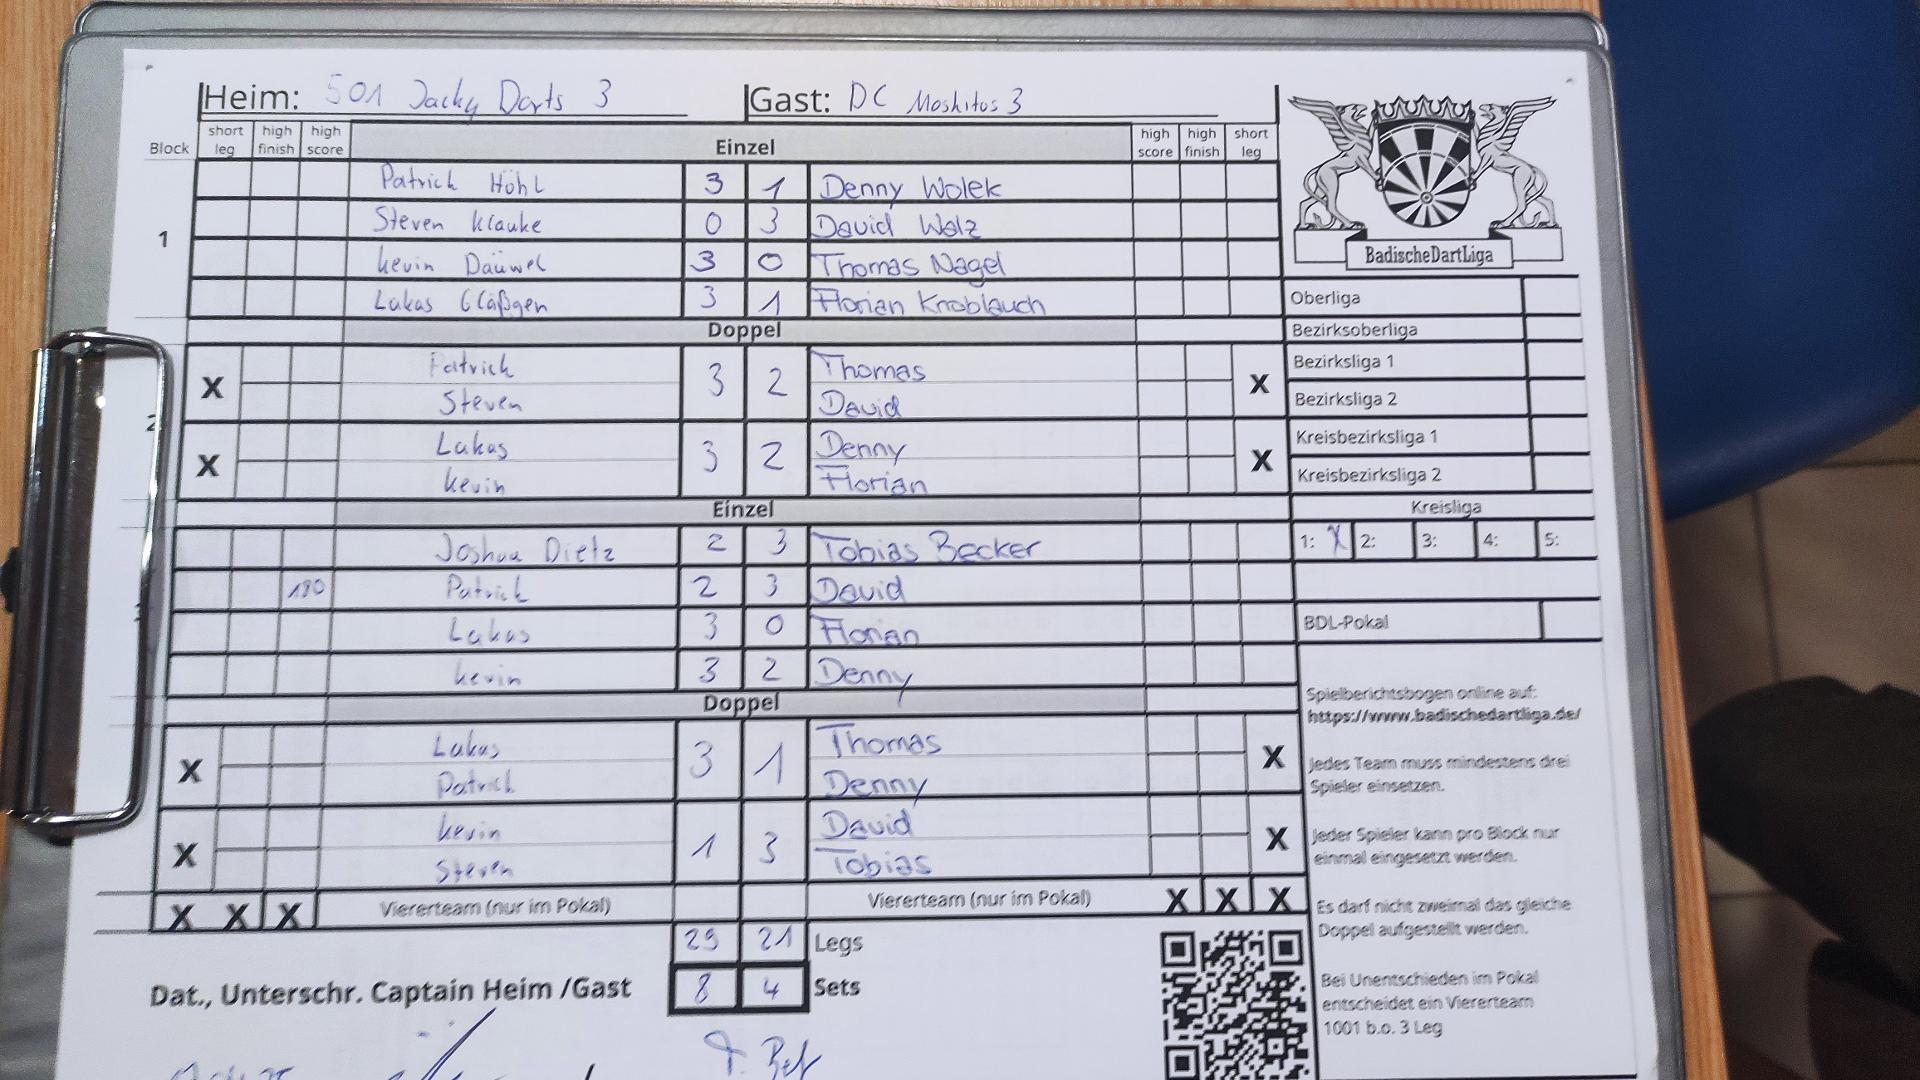 Heim: 501 Jacky Darts 3 Gast: DC Moskitos 3
Block short leg high finish high score Einzel high score high finish short leg
1
Patrick Höhl 3 1 Denny Wolek
Steven Klauke 0 3 David Walz
Kevin Däuwel 3 0 Thomas Nagel
Lukas Gläßgen 3 1 Florian Knoblauch
Doppel
2
X Patrick 3 2 Thomas X
Steven David
X Lukas 3 2 Denny X
Kevin Florian
Einzel
Joshua Dietz 2 3 Tobias Becker
180 Patrick 2 3 David
Lukas 3 0 Florian
Kevin 3 2 Denny
Doppel
X Lukas 3 1 Thomas X
Patrick Denny
X Kevin 1 3 David X
Steven Tobias
X X X Viererteam (nur im Pokal) Viererteam (nur im Pokal) X X X
29 21 Legs
8 4 Sets
Dat., Unterschr. Captain Heim /Gast
BadischeDartLiga
Oberliga
Bezirksoberliga
Bezirksliga 1
Bezirksliga 2
Kreisbezirksliga 1
Kreisbezirksliga 2
Kreisliga
1: X 2: 3: 4: 5:
BDL-Pokal
Spielberichtsbogen online auf:
https://www.badischedartliga.de/
Jedes Team muss mindestens drei
Spieler einsetzen.
Jeder Spieler kann pro Block nur
einmal eingesetzt werden.
Es darf nicht zweimal das gleiche
Doppel aufgestellt werden.
Bei Unentschieden im Pokal
entscheidet ein Viererteam
1001 b.o. 3 Leg